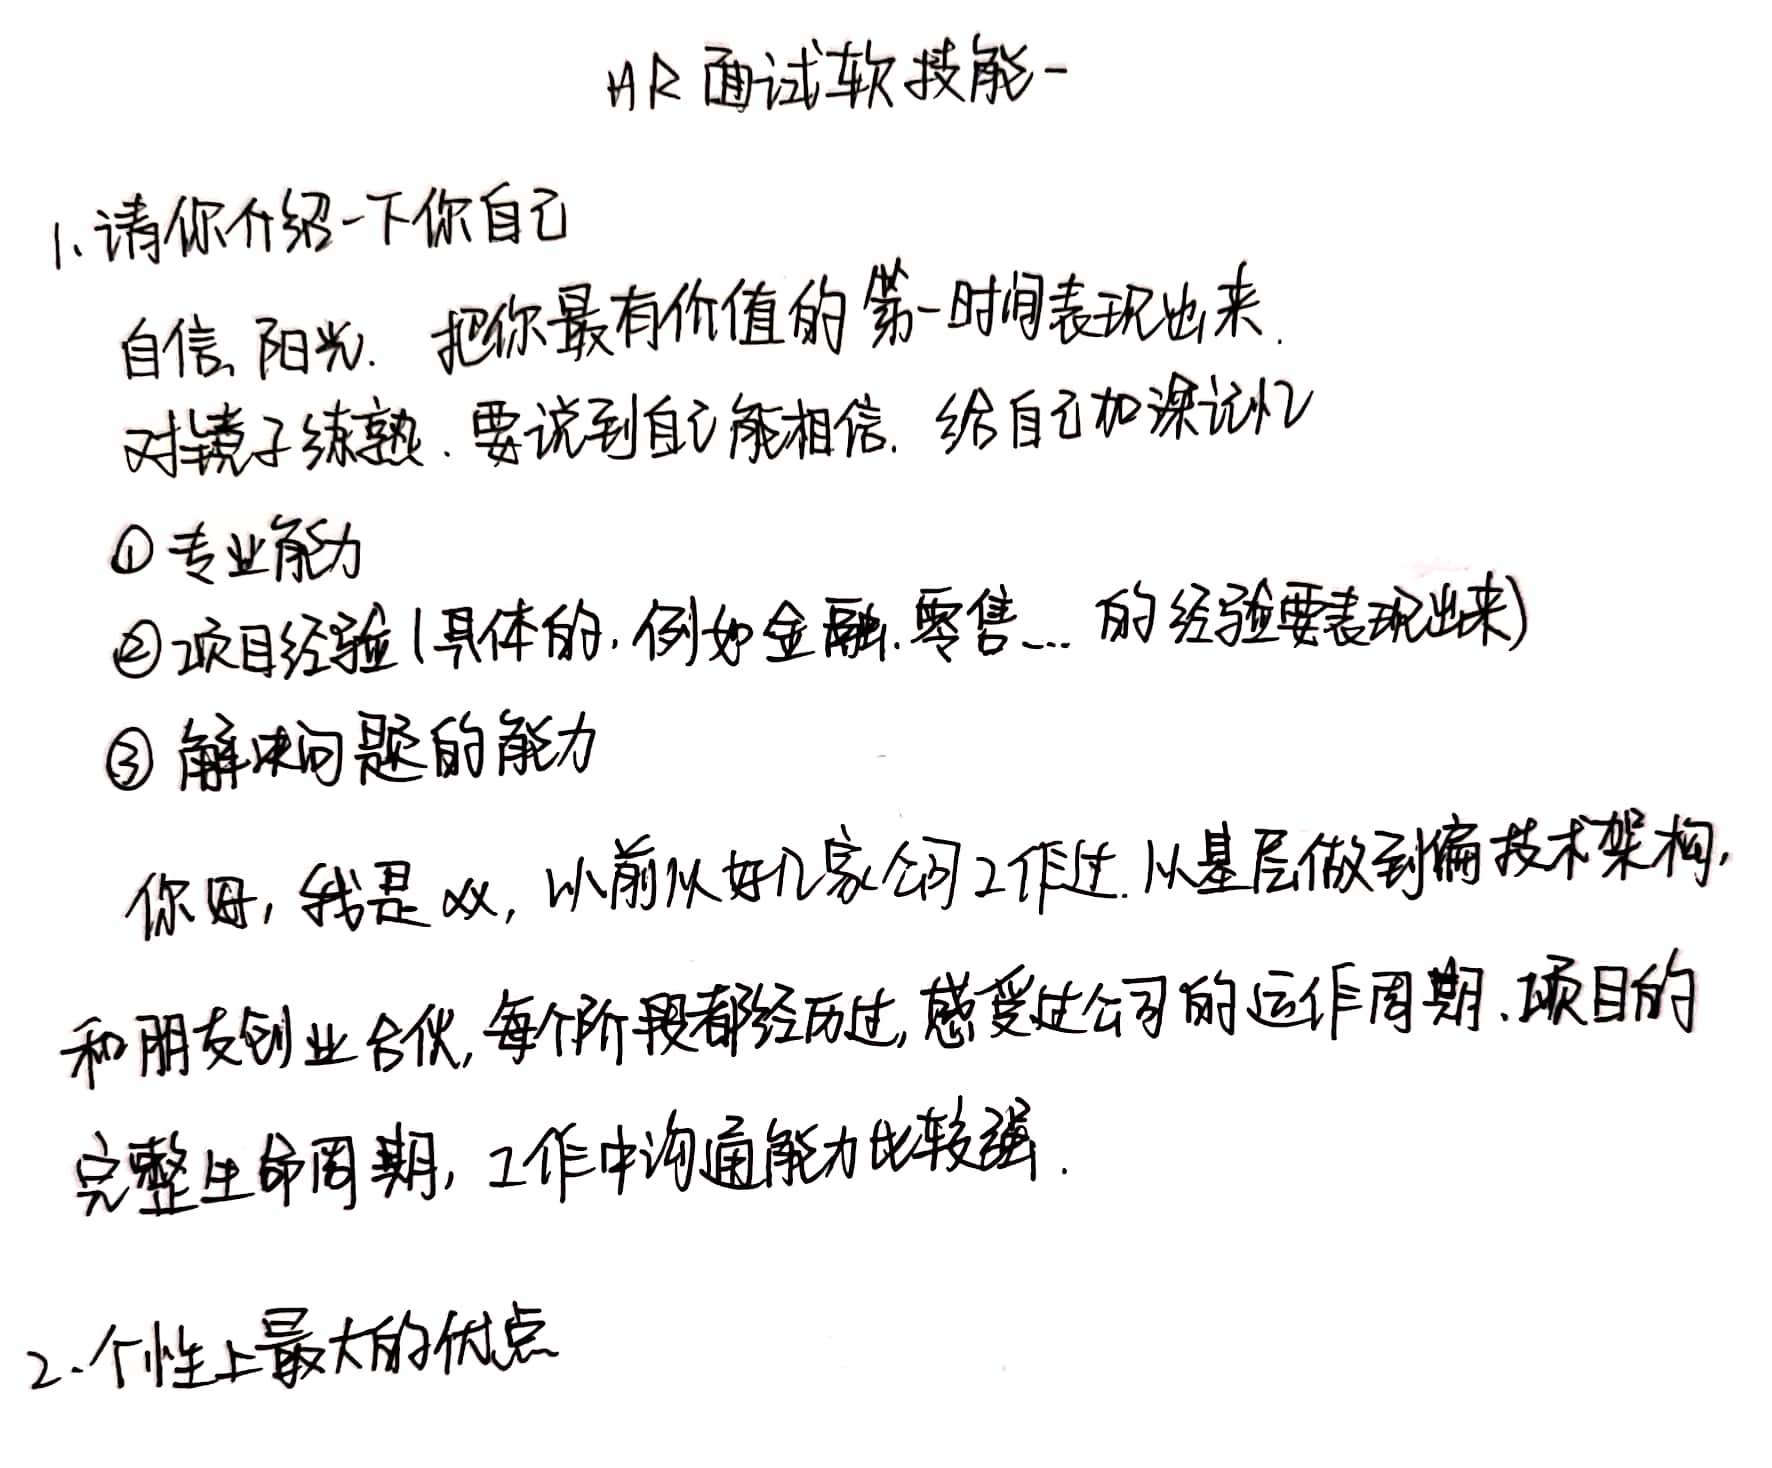 HR面试软技能一
1、请你介绍一下你自己
自信、阳光. 把你最有价值的第一时间表现出来.
对镜子练熟. 要说到自己能相信. 给自己加深记忆
①专业能力
②项目经验(具体的, 例如金融、零售... 的经验要表现出来)
③解决问题的能力
你好, 我是xx, 以前从好几家公司工作过. 从基层做到偏技术架构,
和朋友创业合伙, 每个阶段都经历过, 感受过公司的运作周期、项目的
完整生命周期, 工作中沟通能力比较强.
2、个性上最大的优点